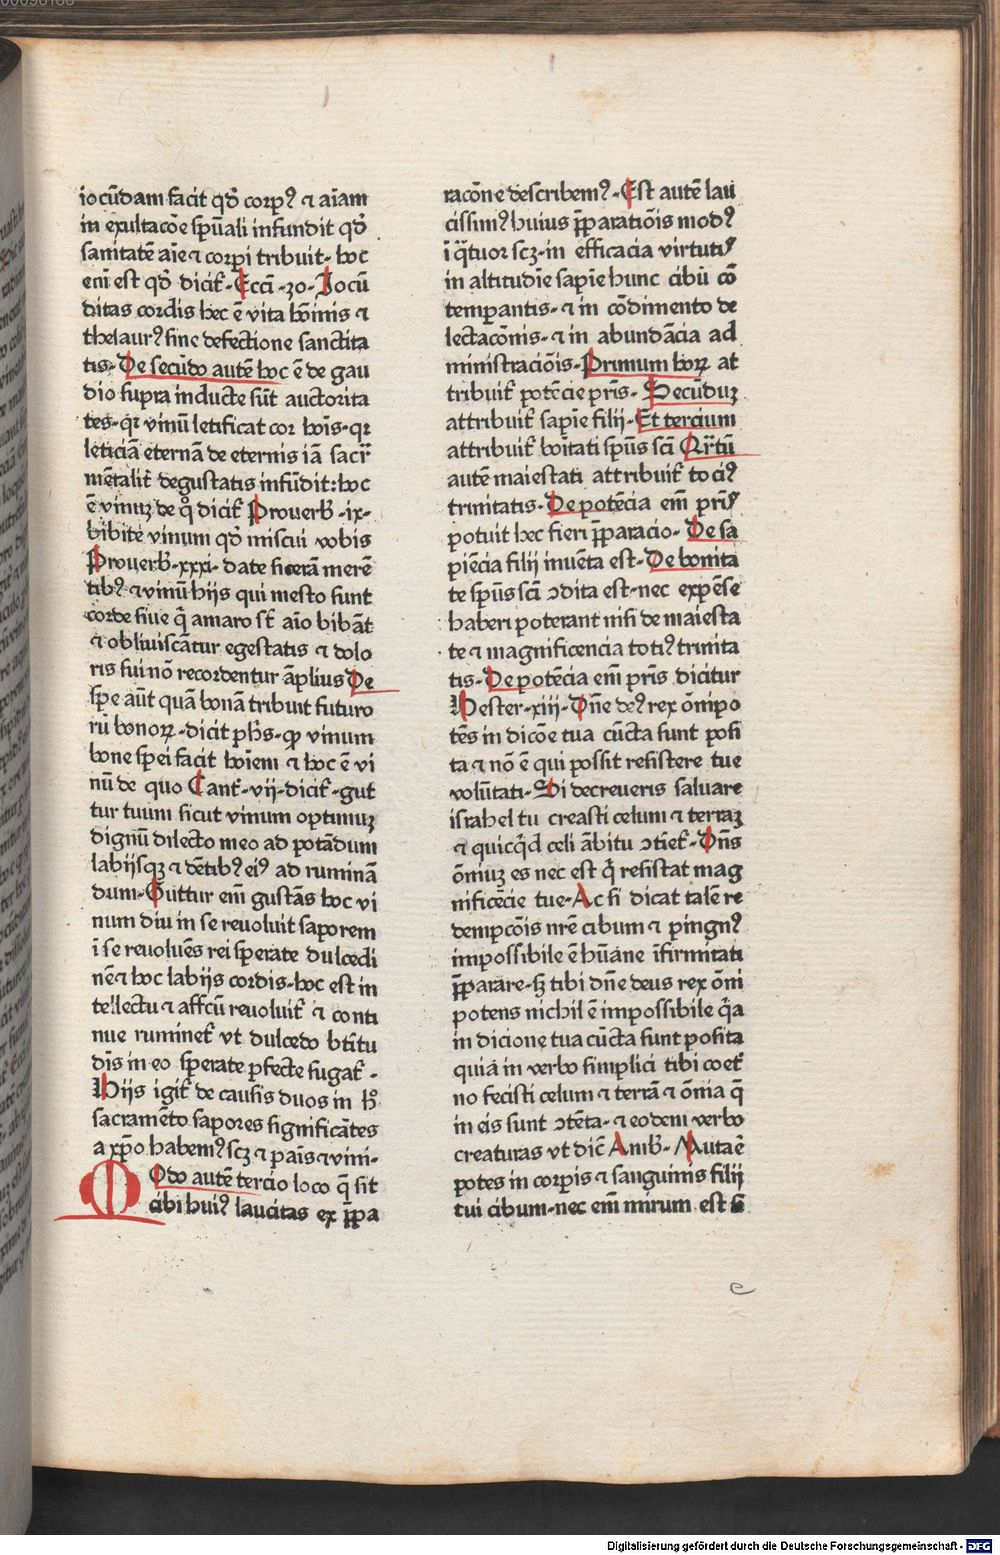 iocūdam facit qď corpꝰ ⁊ aīam
in exultacōe spūali infundit qď
sanitatē aīe ⁊ corpi tribuit· hoc
eni est qď dicit̄·Ecci̅·30·Iocū
ditas cordis hec ē vita hōinis ⁊
thesaurꝰ sine defectione sanctita
tis·De secūdo autē hoc ē de gau
dio supra inducte sūt auctorita
tes·qꝛ vinū letificat cor hoīs·qꝛ
leticiā eternā de eternis iā sacr̄
mētalit̄ degustatis infūdit:hoc
ē vinuꝫ de qͦ dicit̄ Prouerb̄·ix·
bibite vinum qď miscui vobis
Prouerb̄·xxxi·date sicerā merē
tibꝰ ⁊ vinū hijs qui mesto sunt
corde siue q̄ amaro st̄ aīo bibāt
⁊ obliuiscātur egestatis ⁊ dolo
ris sui nō recordentur āplius De
spe aūt quā bonā tribuit futuro
rū bonoꝝ·dicit phs̄·ꝙ vinum
bone spei facit hoīem ⁊ hoc ē vi
nū de quo Cant̄·vij·dicit̄·gut
tur tuum sicut vinum optimuꝫ
dignū dilecto meo ad potādum
labijsqꝫ ⁊ dētibꝰ eiꝰ ad ruminā
dum·Guttur eni̅ gustās hoc vi
num diu in se reuoluit saporem
ī se reuoluēs rei sperate dulcedi
nē ⁊ hoc labijs cordis·hoc est in
tellectu ⁊ affcū reuoluit̄ ⁊ conti
nue ruminet̄ vt dulcedo btītu
dīs in eo sperate pfecte sugat̄·
Hijs igit̄ de causis duos in hͦ
sacramēto sapores significātes
a xp̄o habemꝰ scꝫ ⁊ panis ⁊ vini·
MOdo autē tercio loco q̄ sit
cibi huiꝰ laucitas ex p̄pa
racōne describemꝰ·Est autē laū
cissimꝰ huius p̄paratiōis modꝰ
ī q̄tuor scꝫ·in efficacia virtutis
in altitudīe sapīe hunc cibū cō
temperantis·⁊ in cōdimento de
lectacōnis·⁊ in abundācia ad
ministraciōis·Primum hoꝝ at
tribuit̄ potēcie pris̄·Secūduꝫ
attribuit̄ sapīe filij·Et tercium
attribuit̄ boītati spūs sc̄i Qr̄tū
autē maiestati attribuit̄ tociꝰ
trinitatis·De potēcia em̄ pris̄
potuit hec fieri p̄paracio·De sa
piēcia filij inuēta est·De bonita
te spūs sc̄i ꝯdita est·nec expēse
haberi poterant nisi de maiesta
te ⁊ magnificencia totiꝰ trinita
tis·De potēcia em̄ pris̄ dicitur
Hester·xiij·Dn̄e deꝰ rex ōnipo
tēs in dicōe tua cūcta sunt posi
ta ⁊ nō ē qui possit resistere tue
volūtati·Si decreueris saluare
israhel tu creasti celum ⁊ terraꝫ
⁊ quicq̄d celi ābitu ꝯtiet̄·Dn̄s
ōniuꝫ es nec est q̄ resistat mag
nificēcie tue·Ac si dicat talē re
dempcōis nr̄e cibum ⁊ pingnꝰ
impossibile ē hūane īfirmitati
p̄parare·sꝫ tibi dn̄e deus rex ōni
potens nichil ē impossibile q̄a
in dicione tua cūcta sunt posita
quia in verbo simplici tibi coet̄
no fecisti celum ⁊ terrā ⁊ ōnia q̄
in eis sunt ꝯtēta·⁊ eodem verbo
creaturas vt dic̄ Amb̄·Mutaē
potes in corpis ⁊ sanguinis filij
tui cibum·nec em̄ mirum est si
e
Digitalisierung gefördert durch die Deutsche Forschungsgemeinschaft - DFG